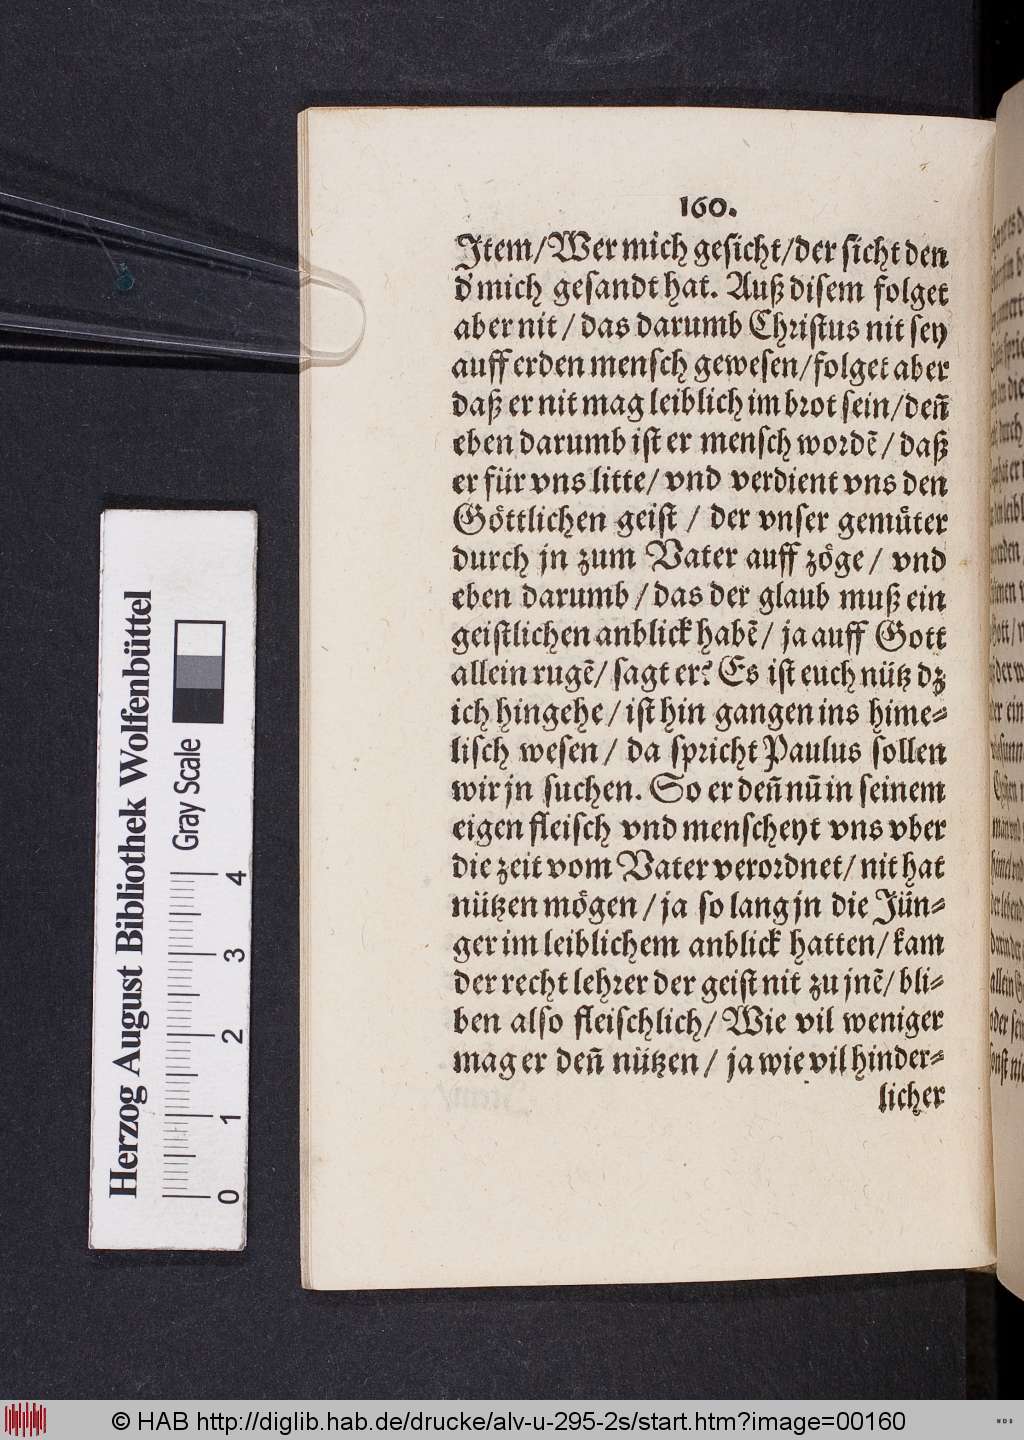 160.
Item/Wer mich gesicht/der sicht den
d' mich gesandt hat. Auß disem folget
aber nit / das darumb Christus nit sey
auff erden mensch gewesen/folget aber
daß er nit mag leiblich im brot sein/deñ
eben darumb ist er mensch wordẽ / daß
er für vns litte/ vnd verdient vns den
Goͤttlichen geist / der vnser gemuͤter
durch jn zum Vater auff zoͤge / vnd
eben darumb / das der glaub muß ein
geistlichen anblick habẽ/ ja auff Gott
allein rugẽ/ sagt er? Es ist euch nuͤtz dz
ich hingehe / ist hin gangen ins hime=
lisch wesen / da spricht Paulus sollen
wir jn suchen. So er deñ nũ in seinem
eigen fleisch vnd menscheyt vns vber
die zeit vom Vater verordnet/ nit hat
nuͤtzen moͤgen / ja so lang jn die Juͤn=
ger im leiblichem anblick hatten/ kam
der recht lehrer der geist nit zu jnẽ/ bli=
ben also fleischlich/ Wie vil weniger
mag er deñ nuͤtzen / ja wie vil hinder=
licher
Herzog August Bibliothek Wolfenbüttel
Gray Scale
0 1 2 3 4
© HAB http://diglib.hab.de/drucke/alv-u-295-2s/start.htm?image=00160